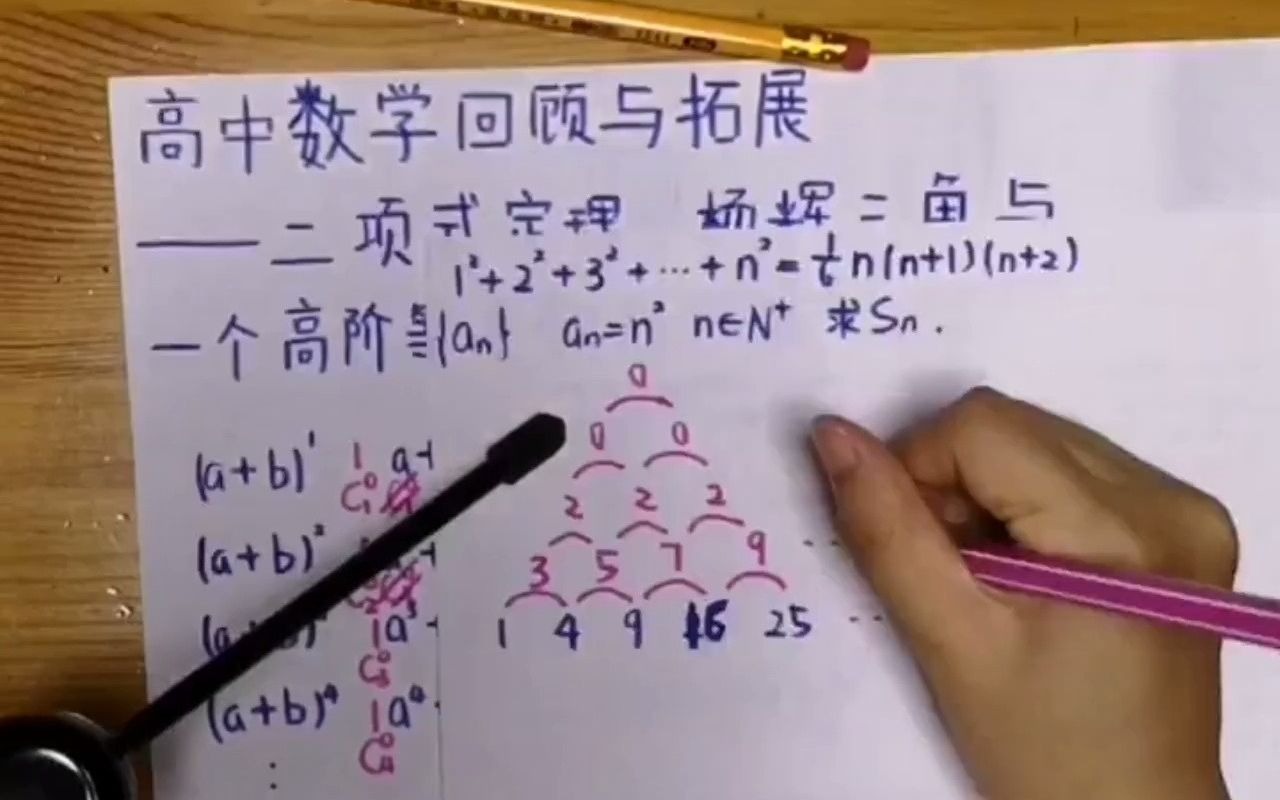 高中数学回顾与拓展
——二项式定理 杨辉三角与
1²+2²+3²+…+n²=⅙n(n+1)(n+2)
一个高阶等差{aₙ} aₙ=n² n∈N⁺ 求Sₙ.
0
0 0
2 2 2
3 5 7 9 …
1 4 9 16 25 …
(a+b)¹ 1 a+
C₁⁰
(a+b)²
1a³+
C₃⁰
(a+b)⁴ 1a⁴
C₄⁰
⋮